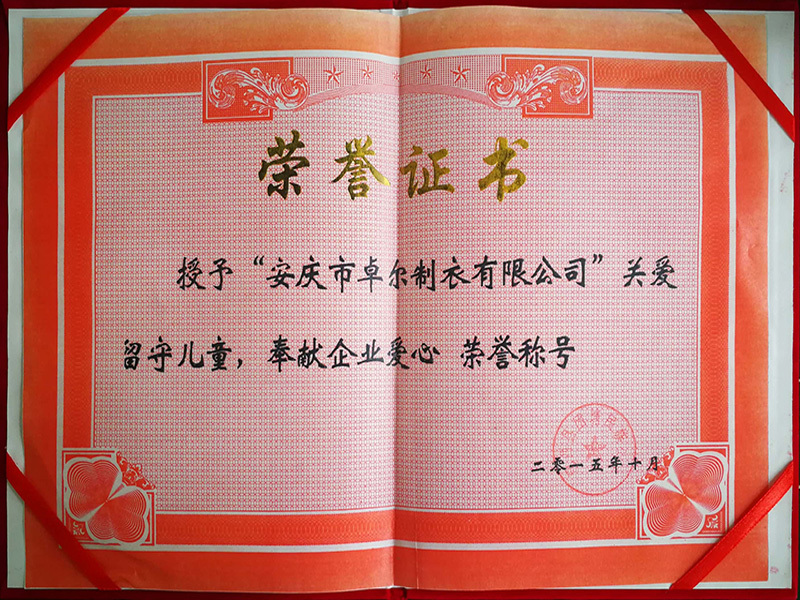 荣誉证书
授予“安庆市卓尔制衣有限公司”关爱
留守儿童，奉献企业爱心 荣誉称号
二零一五年十月